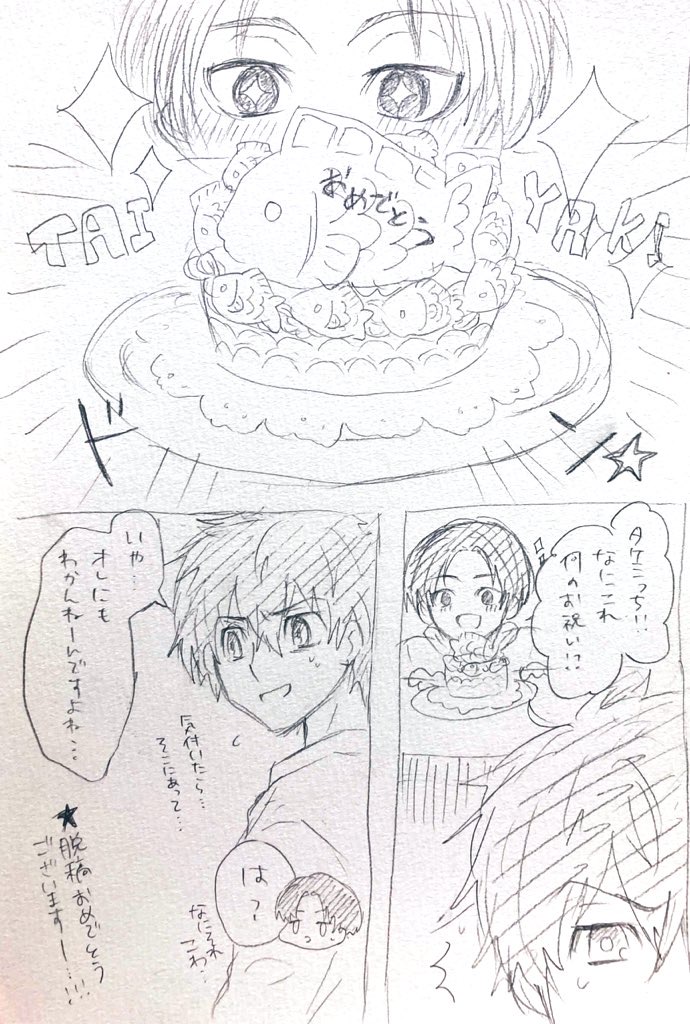 TAI
YAKI
おめでとう
ドン☆
タケミっち!!
なにこれ
何のお祝い!?
いや…
オレにも
わかんねーんですよね…
気付いたら…
そこにあって…
は?
なにそれ
こわ…
★脱稿おめでとう
ございますー…!!!